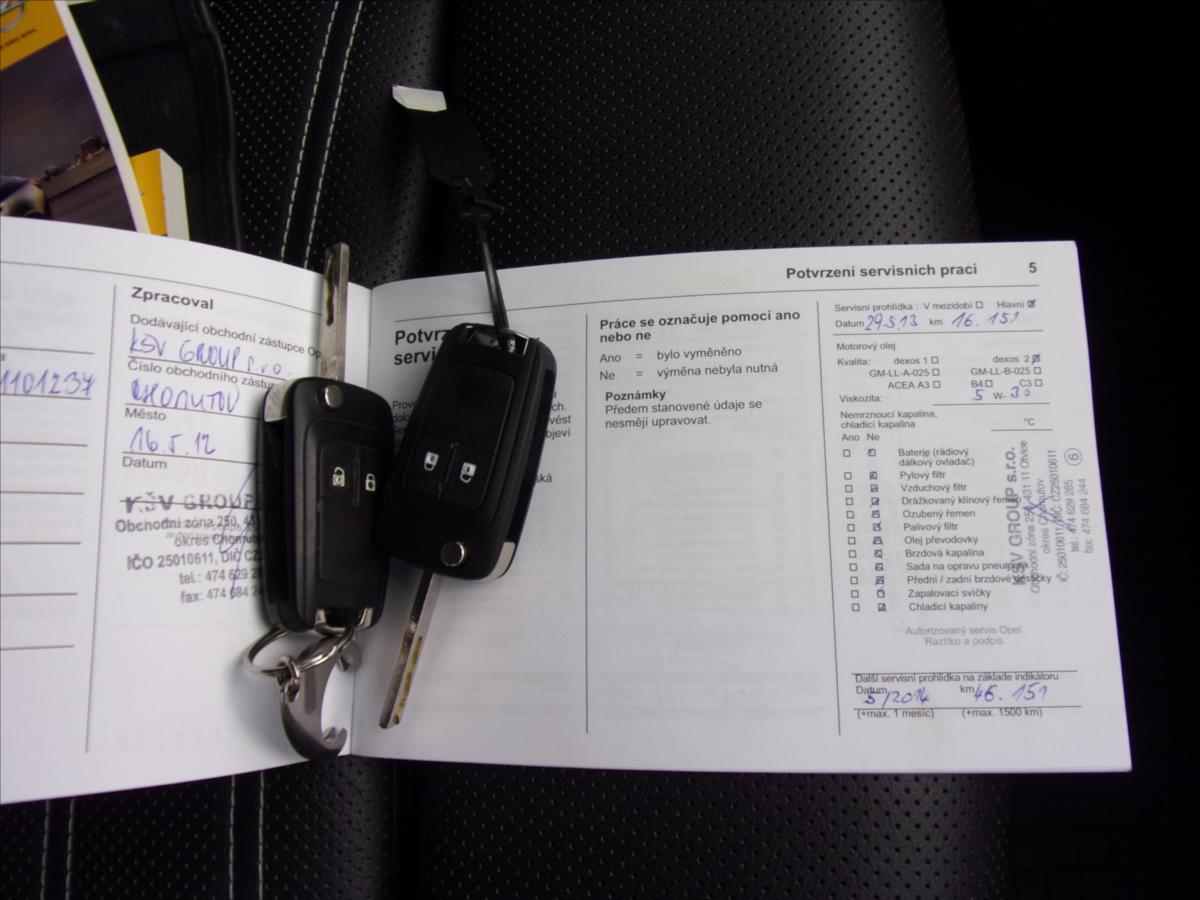 Zpracoval
Dodávající obchodní zástupce Op
KŠV GROUP s.r.o.
Číslo obchodního zástup
1101237
CHOMUTOV
Město
16.5.12
Datum
KŠV GROUP
Obchodní zóna 250, 431
okres Chomutov
IČO 25010611, DIČ CZ
tel.: 474 629 28
fax: 474 684 24
Potvrzení servisních prací 5
Potvrz
servi
Práce se označuje pomocí ano
nebo ne
Ano = bylo vyměněno
Ne = výměna nebyla nutná
Poznámky
Předem stanovené údaje se
nesmějí upravovat.
Servisní prohlídka : V mezidobí Hlavní
Datum 29.5.13 km 16.151
Motorový olej
Kvalita: dexos 1 dexos 2
GM-LL-A-025 GM-LL-B-025
ACEA A3 B4 C3
Viskozita: 5 W- 30
Nemrznoucí kapalina,
chladicí kapalina °C
Ano Ne
Baterie (rádiový
dálkový ovladač)
Pylový filtr
Vzduchový filtr
Drážkovaný klínový řemen
Ozubený řemen
Palivový filtr
Olej převodovky
Brzdová kapalina
Sada na opravu pneumatik
Přední / zadní brzdové destičky
Zapalovací svíčky
Chladicí kapaliny
KŠV GROUP s.r.o.
Obchodní zóna 250, 431 11 Otvice
okres Chomutov
IČ: 25010611, DIČ: CZ25010611
tel.: 474 629 285
fax: 474 684 244
6
Autorizovaný servis Opel
Razítko a podpis
Další servisní prohlídka na základe indikátoru
Datum 5/2014 km 46.151
(+max. 1 mesíc) (+max. 1500 km)